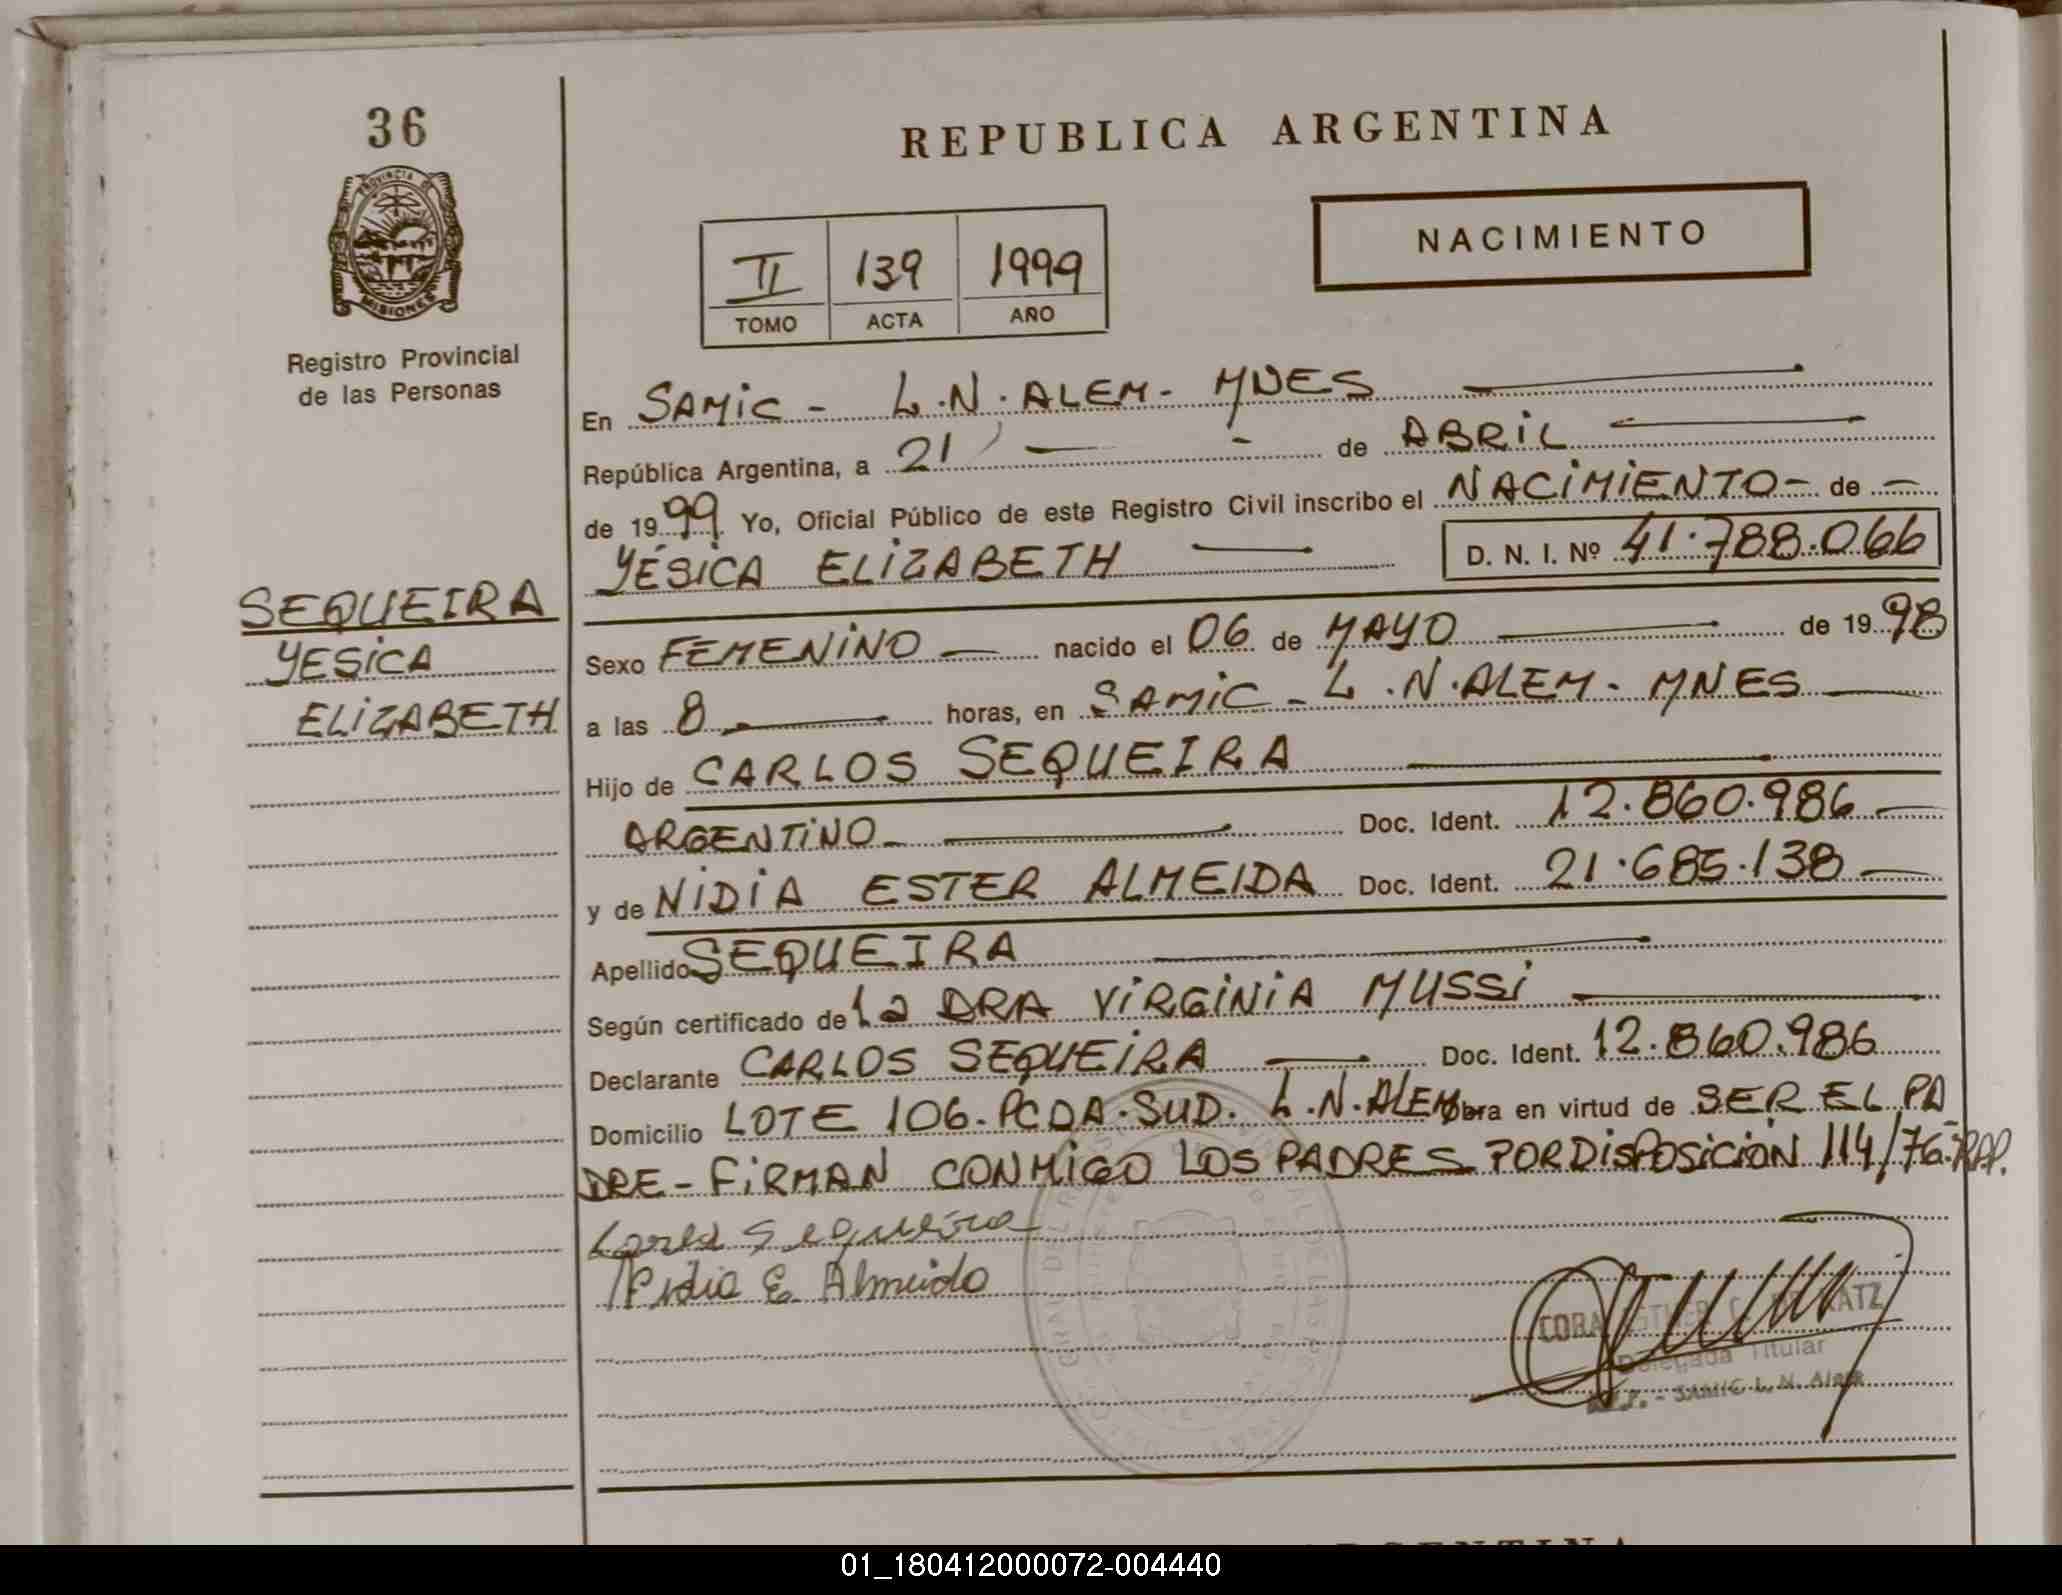 36
PROVINCIA DE
MISIONES
Registro Provincial
de las Personas
SEQUEIRA
YESICA
ELIZABETH
REPUBLICA ARGENTINA
II 139 1999
TOMO ACTA AÑO
NACIMIENTO
En SAMIC - L.N. ALEM - MNES
República Argentina, a 21 - de ABRIL
de 1999 Yo, Oficial Público de este Registro Civil inscribo el NACIMIENTO - de -
YÉSICA ELIZABETH D. N. I. Nº 41.788.066
Sexo FEMENINO nacido el 06 de MAYO de 1998
a las 8 horas, en SAMIC - L.N. ALEM - MNES
Hijo de CARLOS SEQUEIRA
ARGENTINO Doc. Ident. 12.860.986
y de NIDIA ESTER ALMEIDA Doc. Ident. 21.685.138
Apellido SEQUEIRA
Según certificado de la DRA VIRGINIA MUSSI
Declarante CARLOS SEQUEIRA Doc. Ident. 12.860.986
Domicilio LOTE 106. PCDA. SUD. L.N. ALEM Obra en virtud de SER EL PA
DRE - FIRMAN CONMIGO LOS PADRES POR DISPOSICIÓN 114/76-RPP.
Carlos Sequeira
Nidia E. Almeida
CORA ESTHER
Delegada Titular
SAMIC L. N. Alem
ARGENTINA
01_180412000072-004440